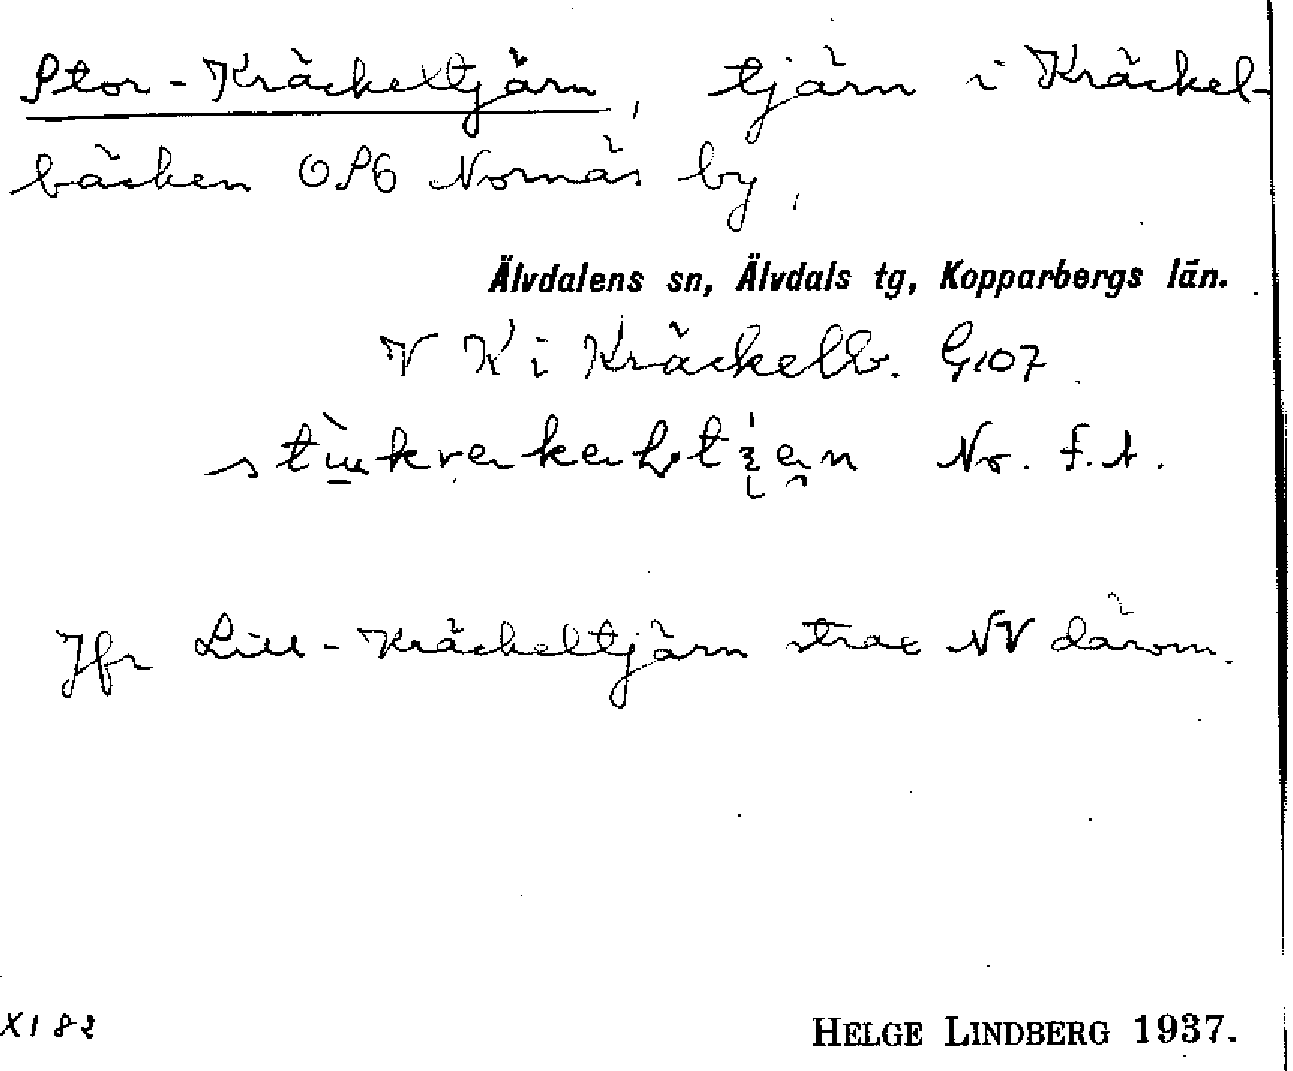 Stor-Kräckeltjärn, tjärn i Kräckel-
bäcken OSO Nornäs by,
Älvdalens sn, Älvdals tg, Kopparbergs län.
V K i Kräckelb. G107
No. f.A.
Jfr Lill-Kräckeltjärn strax NV därom.
X1 82
HELGE LINDBERG 1937.